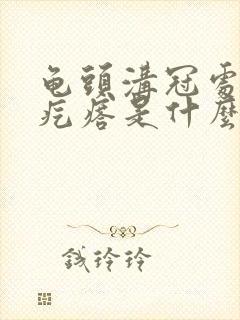 龟頭溝冠處
疙瘩是什麼
钱玲玲